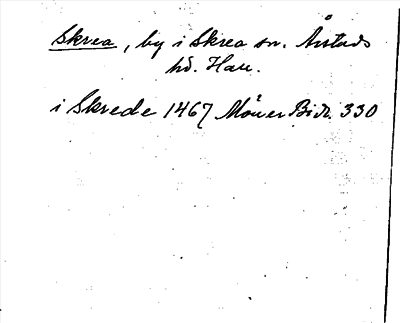 Skrea, by i Skrea sn. Årstads
hd. Hall.
i Skrede 1467 Möller Bidr. 330